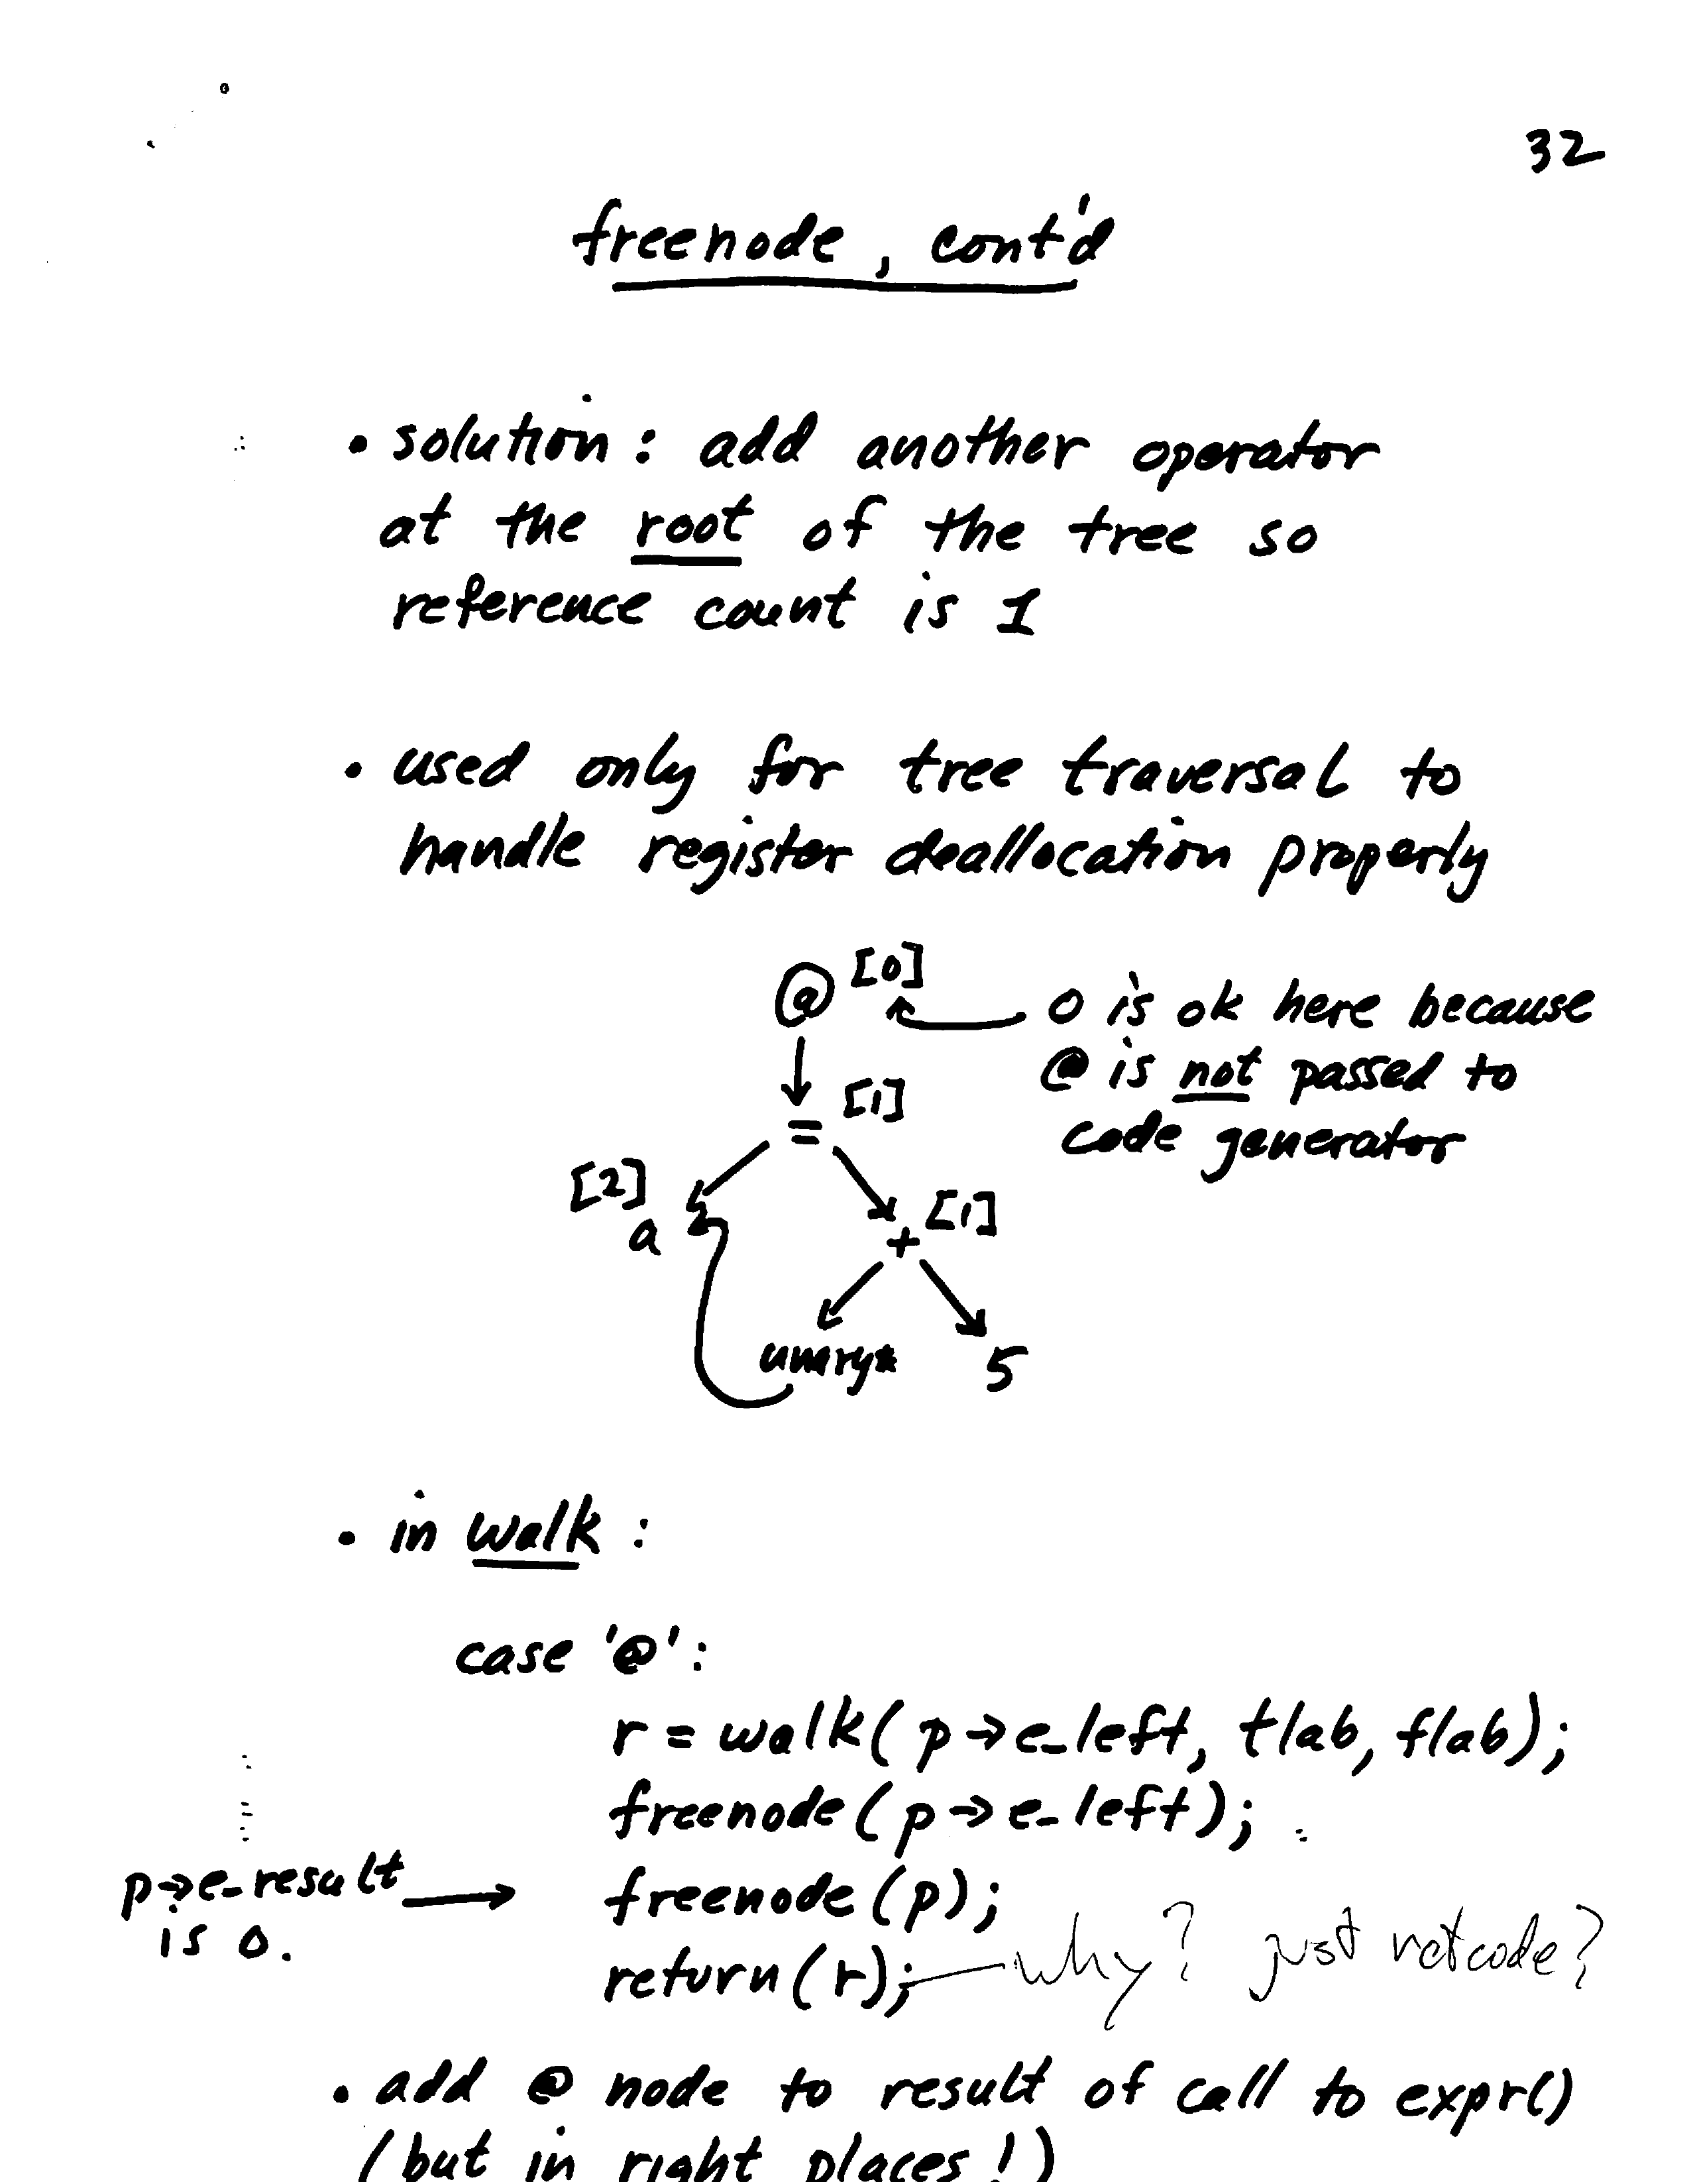 32
freenode, cont'd
• solution: add another operator
at the root of the tree so
reference count is 1
• used only for tree traversal to
handle register deallocation properly
@ [0]
0 is ok here because
@ is not passed to
code generator
= [1]
[2]
a
+ [1]
unary* 5
• in walk:
case '@':
r = walk(p→e_left, tlab, flab);
freenode(p→e_left);
p→e_result → freenode(p);
is 0.
return(r); why? just retcode?
• add @ node to result of call to expr()
(but in right places!)